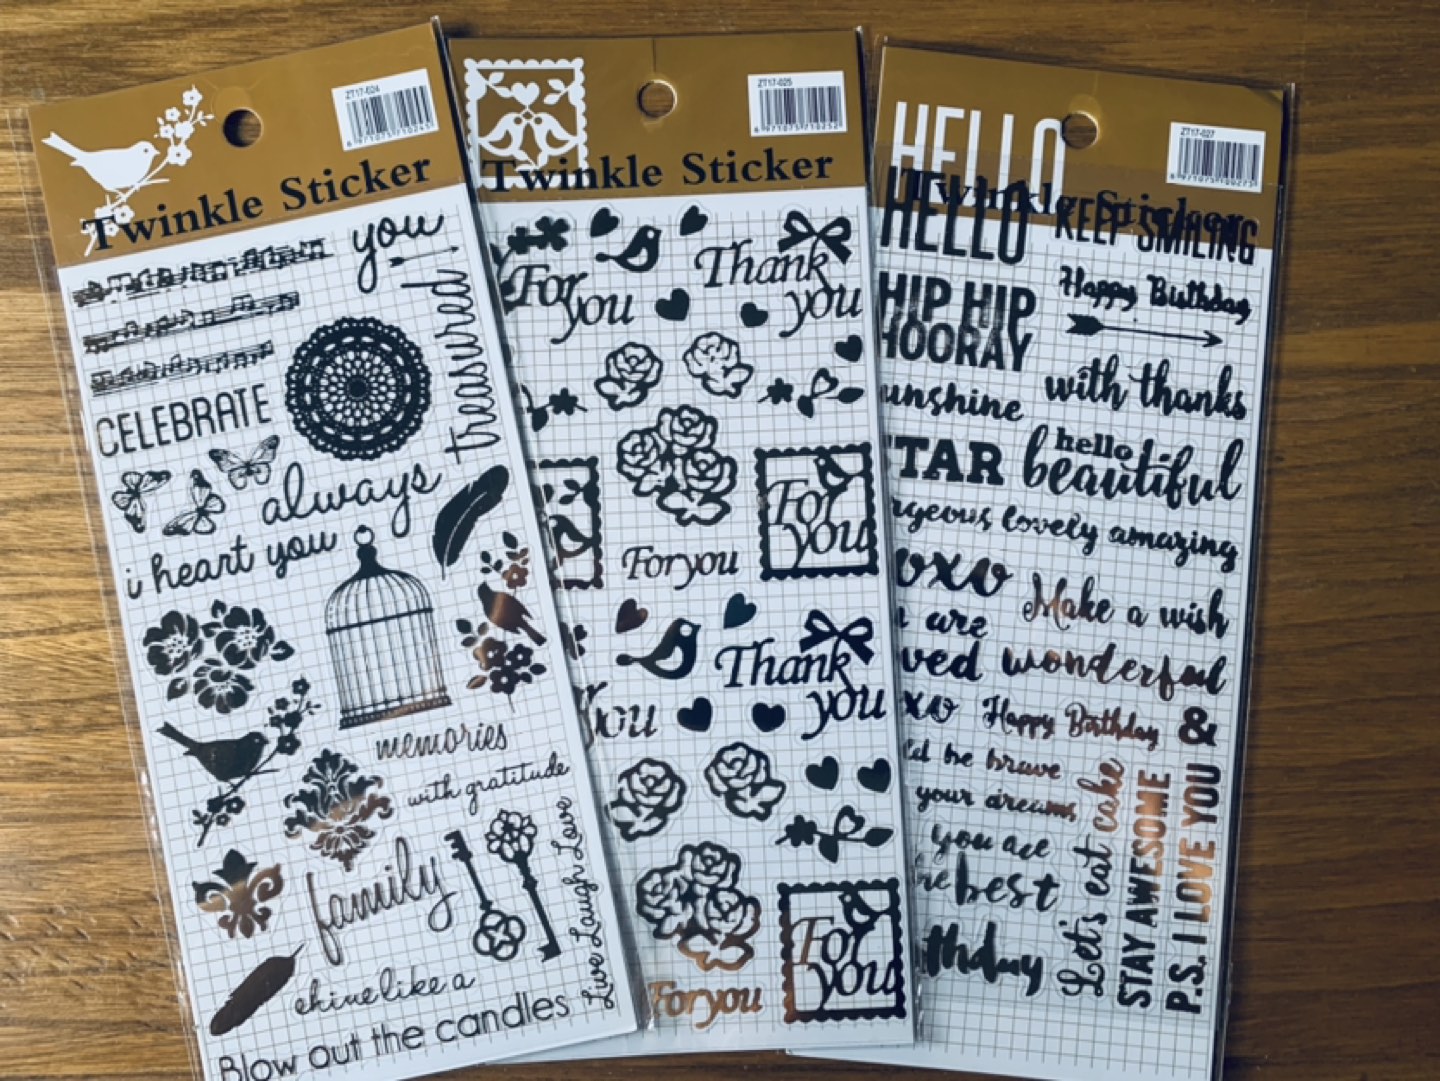 ZT17-024
6 971075 710245
Twinkle Sticker
you
treasured
CELEBRATE
always
i heart you
memories
with gratitude
family
Live Laugh Love
shine like a
Blow out the candles
ZT17-025
6 971075 710252
Twinkle Sticker
For
you
Thank
you
For
you
For you
Thank
you
you
For
you
For you
ZT17-027
HELLO
Twinkle Sticker
HELLO
KEEP SMILING
HIP HIP
HOORAY
Happy Birthday
with thanks
unshine
TAR
hello
beautiful
rgeous lovely amazing
oxo
Make a wish
are
ved
wonderful
xo
Happy Birthday
&
ld be brave
your dreams
you are
he best
thday
Let's eat cake
STAY AWESOME
P.S. I LOVE YOU